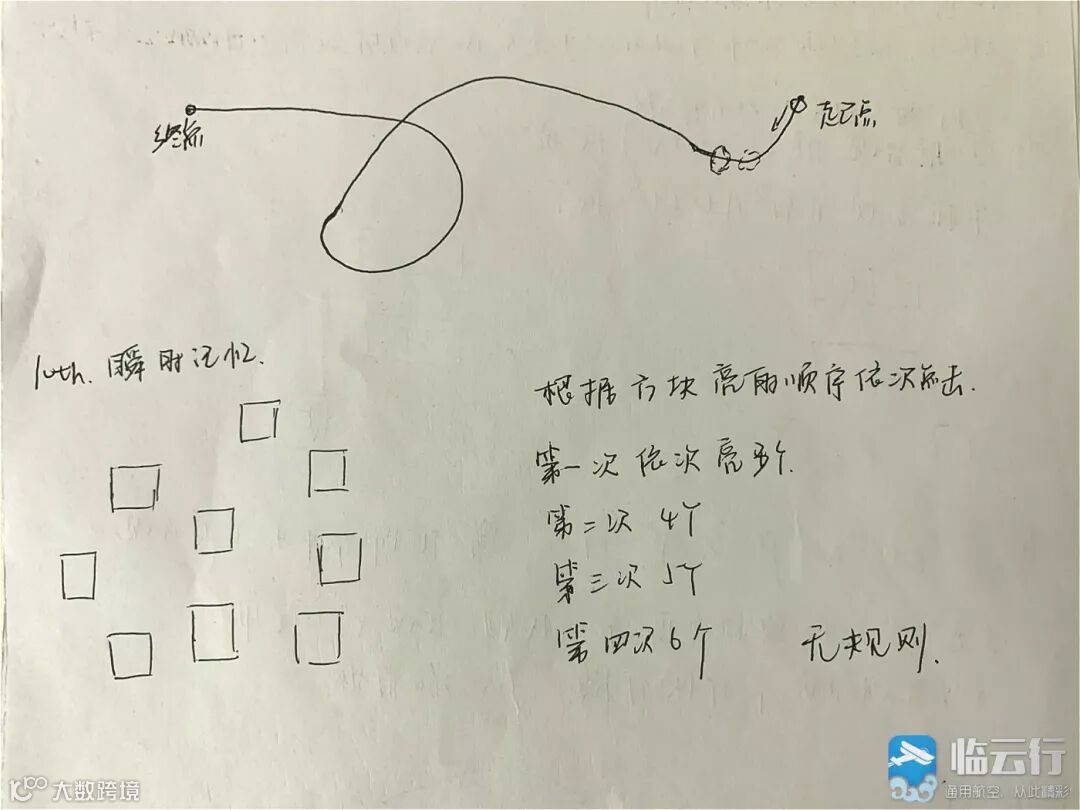 起点
终点
10th. 瞬时记忆.
根据方块亮的顺序依次点击.
第一次 依次亮3个.
第二次 4个
第三次 5个
第四次 6个 无规则.
临云行
通用航空，从此精彩
大数跨境